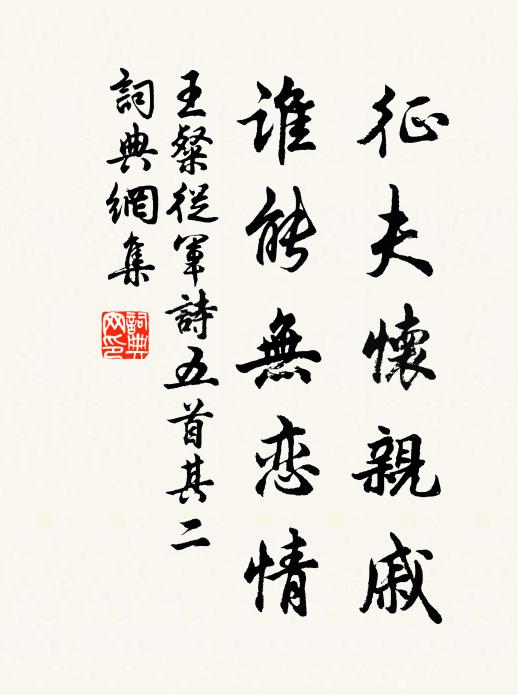 征夫懷親戚
誰能無恋情
王粲從軍詩五首其二
詞典網集
詞典网印